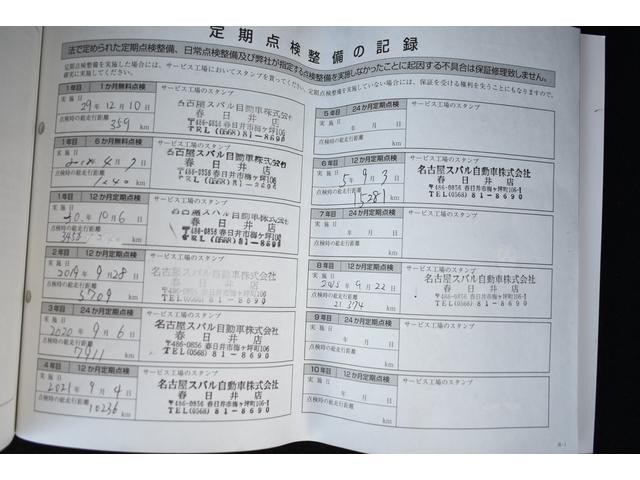 定期点検整備の記録
法で定められた定期点検整備、日常点検整備及び弊社が指定する点検整備を実施しなかったことに起因する不具合は保証修理致しません。
定期点検整備を実施した場合には、サービス工場においてスタンプを貰ってください。定期点検整備を実施していない場合には、保証を受ける権利を失うことにもなりますので、
確実に実施してください。
1年目 1か月無料点検 サービス工場のスタンプ
実施日 29年12月10日
点検時の総走行距離 359 km
名古屋スバル自動車株式会社
春日井店
〒486-0856 春日井市梅ヶ坪町106
TEL (0568) 81-8690
1年目 6か月無料点検 サービス工場のスタンプ
実施日 4月7日
点検時の総走行距離 km
名古屋スバル自動車株式会社
春日井店
〒486-0856 春日井市梅ヶ坪町106
TEL (0568) 81-8690
1年目 12か月定期点検 サービス工場のスタンプ
実施日 30年10月6日
点検時の総走行距離 km
名古屋スバル自動車株式会社
春日井店
〒486-0856 春日井市梅ヶ坪町106
TEL (0568) 81-8690
2年目 12か月定期点検 サービス工場のスタンプ
実施日 2019年9月28日
点検時の総走行距離 5709 km
名古屋スバル自動車株式会社
春日井店
〒486-0856 春日井市梅ヶ坪町106
TEL (0568) 81-8690
3年目 24か月定期点検 サービス工場のスタンプ
実施日 2020年9月6日
点検時の総走行距離 7911 km
名古屋スバル自動車株式会社
春日井店
〒486-0856 春日井市梅ヶ坪町106
TEL (0568) 81-8690
4年目 12か月定期点検 サービス工場のスタンプ
実施日 2021年9月4日
点検時の総走行距離 10236 km
名古屋スバル自動車株式会社
春日井店
〒486-0856 春日井市梅ヶ坪町106-1
TEL (0568) 81-8690
5年目 24か月定期点検 サービス工場のスタンプ
実施日 年月日
点検時の総走行距離 km
6年目 12か月定期点検 サービス工場のスタンプ
実施日 5年9月3日
点検時の総走行距離 15281 km
名古屋スバル自動車株式会社
春日井店
〒486-0856 春日井市梅ヶ坪町106-1
TEL (0568) 81-8690
7年目 24か月定期点検 サービス工場のスタンプ
実施日 年月日
点検時の総走行距離 km
8年目 12か月定期点検 サービス工場のスタンプ
実施日 年9月22日
点検時の総走行距離 km
名古屋スバル自動車株式会社
春日井店
〒486-0856 春日井市梅ヶ坪町106-1
TEL (0568) 81-8690
9年目 24か月定期点検 サービス工場のスタンプ
実施日 年月日
点検時の総走行距離 km
10年目 12か月定期点検 サービス工場のスタンプ
実施日 年月日
点検時の総走行距離 km